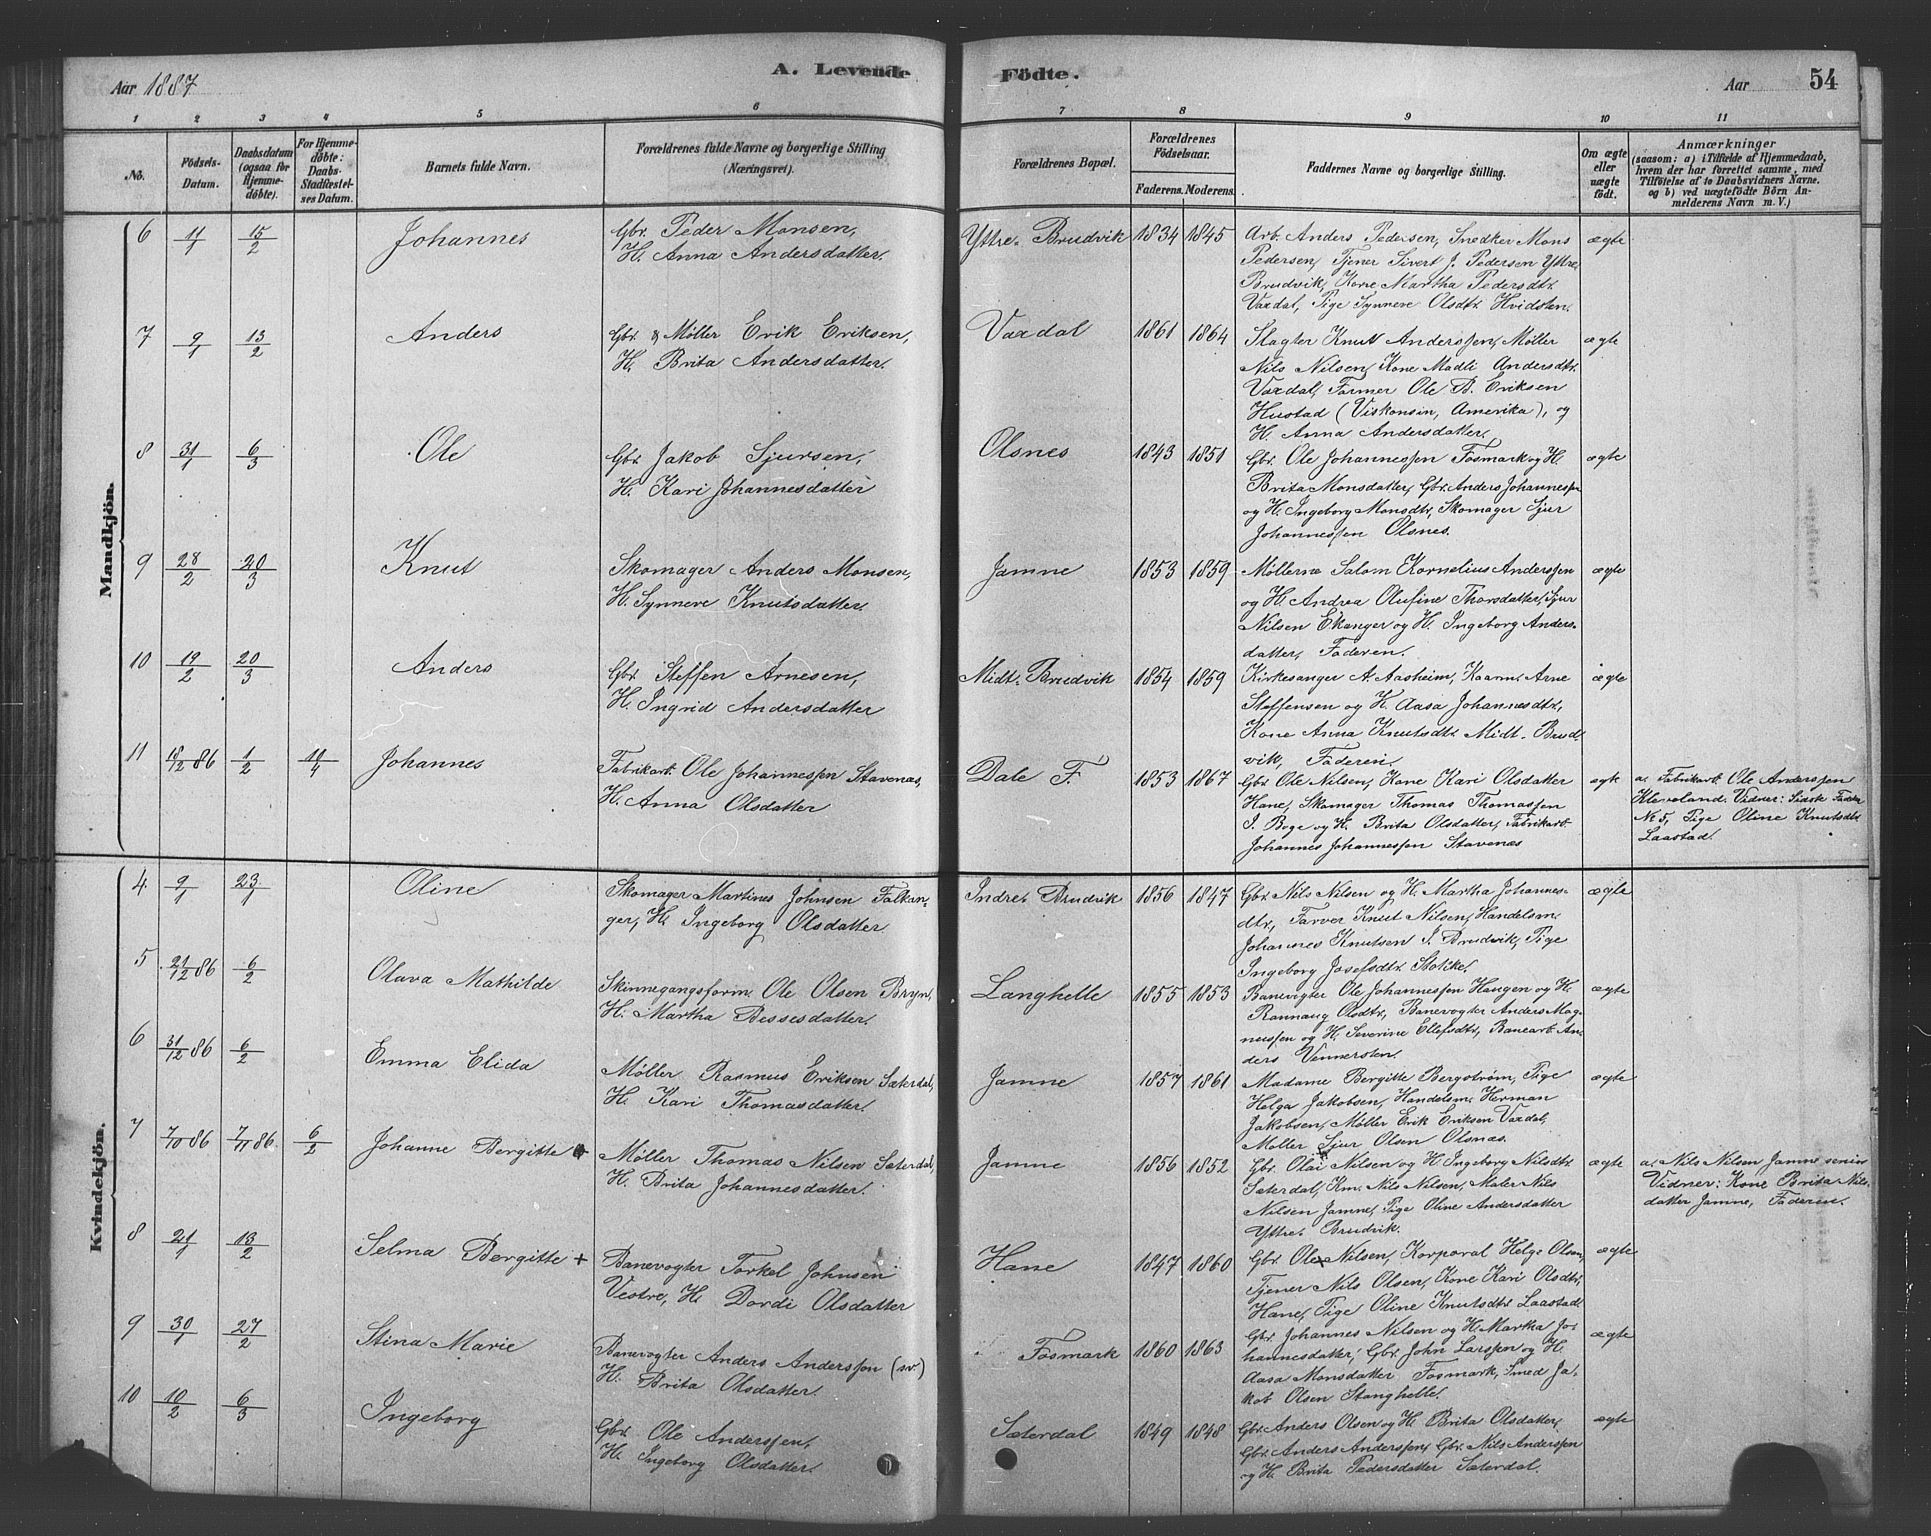 Aar 1887
A. Levende
Födte.
Aar
54
1 2 3 4 5 6 7 8 9 10 11
No.
Födsels-
Datum.
Daabsdatum
(ogsaa for
Hjemme-
döbte).
For Hjemme-
döbte:
Daabs-
Stadfæstel-
ses Datum.
Barnets fulde Navn.
Forældrenes fulde Navne og borgerlige Stilling
(Næringsvei).
Forældrenes Bopæl.
Forældrenes
Födselsaar.
Faderens. Moderens.
Faddernes Navne og borgerlige Stilling.
Om ægte
eller
uægte
födt.
Anmærkninger
(saasom: a) i Tilfælde af Hjemmedaab,
hvem der har forrettet samme, med
Tilföielse af to Daabsvidners Navne.
og b) ved uægtefödte Börn An-
melderens Navn m. V.)
Mandkjön.
6 11/1 15/2 Johannes
Gbr. Peder Monsen,
H. Anna Andersdatter.
Yttre-Brudvik 1834 1845
Arb. Anders Pedersen, Snedker Mons
Pedersen, Tjener Sivert J. Pedersen Yttre
Brudvik, Kone Martha Pedersdtr.
Vaxdal, Pige Synneve Olsdtr. Hvidsten.
ægte
7 9/1 13/2 Anders
Gbr. & Møller Erik Eriksen,
H. Brita Andersdatter.
Vaxdal 1861 1864
Slagter Knut Anderssen, Møller
Nils Nilsen, Kone Madli Andersdtr.
Vaxdal, Farmer Ole B. Eriksen
Hustad (Viskonsin, Amerika), og
H. Anna Andersdatter.
ægte
8 31/1 6/3 Ole
Gbr. Jakob Sjursen,
H. Kari Johannesdatter
Olsnes 1843 1851
Gbr. Ole Johannessen Fosmark og H.
Brita Monsdatter, Gbr. Anders Johannessen
og H. Ingeborg Monsdtr, Skomager Sjur
Johannessen Olsnes.
ægte
9 28/2 20/3 Knut
Skomager Anders Monsen,
H. Synneve Knutsdatter.
Jamne 1853 1859
Møllerne Salom. Kornelius Anderssen
og H. Andrea Olufine Thorsdatter, Sjur
Nilsen Ekanger og H. Ingeborg Anders-
datter, Faderen.
ægte
10 19/2 20/3 Anders
Gbr. Steffen Arnesen,
H. Ingrid Andersdatter
Midt-Brudvik 1854 1859
Kirkesanger A. Aasheim, Kaarm. Arne
Steffensen og H. Aasa Johannesdtr,
Kone Anna Knutsdtr. Midt-Brud-
vik, Faderen.
ægte
11 18/12 86 1/2 10/4 Johannes
Fabrikarb. Ole Johannessen Stavenæs,
H. Anna Olsdatter
Dale F. 1853 1867
Gbr. Ole Nilsen, Kone Kari Olsdatter
Hane, Skomager Thomas Thomassen
I. Boge og H. Brita Olsdatter, Fabrikarb.
Johannes Johannessen Stavenæs
ægte
a. Fabrikarb. Ole Anderssen
Kleveland. Vidner: Sidste Fadder
No 5, Pige Oline Knutsdtr.
Laastad.
Kvindekjön.
4 9/1 23/1 Oline
Skomager Martines Johnsen Falkan-
ger, H. Ingeborg Olsdatter
Indre-Brudvik 1856 1847
Gbr. Nils Nilsen og H. Martha Johannes-
dtr, Farver Knut Nilsen, Handelsm.
Johannes Knutsen I. Brudvik, Pige
Ingeborg Josefsdtr. Stokke.
ægte
5 21/12 86 6/2 Olava Mathilde
Skinnegangsform. Ole Olsen Bryn,
H. Martha Bessesdatter.
Langhelle 1855 1853
Banevogter Ole Johannessen Haugen og H.
Rannaug Olsdtr, Banevogter Anders Mag-
nussen og H. Severine Ellefsdtr, Banearb. An-
ders Vennersten.
ægte
6 31/12 86 6/2 Emma Elida
Møller Rasmus Eriksen Sæterdal,
H. Kari Thomasdatter.
Jamne 1857 1861
Madame Bergitte Bergstrøm, Pige
Helga Jakobsen, Handelsm. Herman
Jakobsen, Møller Erik Eriksen Vaxdal,
Møller Sjur Olsen Olsnæs.
ægte
7 7/10 86 7/11 86 6/2 Johanne Bergitte +
Møller Thomas Nilsen Sæterdal,
H. Brita Johannesdatter.
Jamne 1856 1852
Gbr. Olai Nilsen og H. Ingeborg Nilsdtr.
Sæterdal, Km. Nils Nilsen, Maler Nils
Nilsen Jamne, Pige Oline Andersdatter
Yttre-Brudvik.
ægte
a. Nils Nilsen Jamne senior
Vidner: Kone Brita Nils-
datter Jamne, Faderen.
8 21/1 13/2 Selma Bergitte +
Banevogter Torkel Johnsen
Vestre, H. Dordi Olsdatter
Hane 1847 1860
Gbr. Ole Nilsen, Korporal Helge Olsen,
Tjener Nils Olsen, Kone Kari Olsdtr,
Hane, Pige Oline Knutsdtr. Laastad.
ægte
9 30/1 27/2 Stina Marie
Banevogter Anders Anderssen (sv.)
H. Brita Olsdatter.
Fosmark 1860 1863
Gbr. Johannes Nilsen og H. Martha Jo-
hannesdatter, Gbr. John Larssen og H.
Aasa Monsdatter Fosmark, Smed Ja-
kob Olsen Stanghelle.
ægte
10 10/2 6/3 Ingeborg
Gbr. Ole Anderssen,
H. Ingeborg Olsdatter.
Sæterdal 1849 1848
Gbr. Anders Olsen og H. Brita Olsdatter,
Gbr. Anders Anderssen, Gbr. Nils Anderssen
og H. Brita Pedersdatter Sæterdal.
ægte